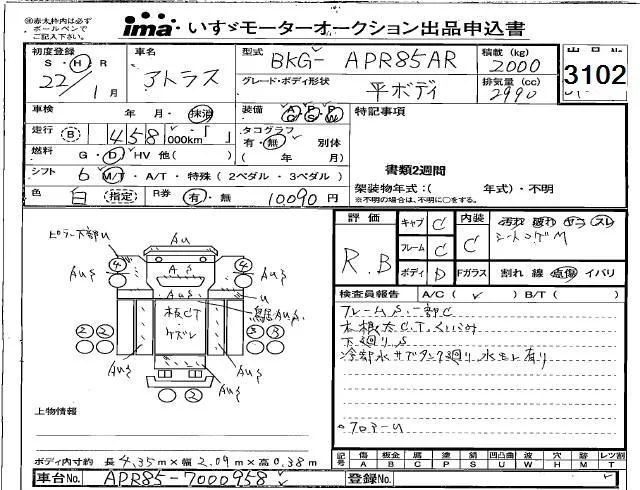 ㊟赤太枠内は必ず
ボールペンで
ご記入下さい。
ima いすゞモーターオークション出品申込書
初度登録 S・H・R 22/1月
車名 アトラス
型式 BKG- APR85AR
積載 (kg) 2000
3102
グレード・ボディ形状 平ボディ
排気量 (cc) 2990
車検 年・月・抹消
装備 AC PS PW
特記事項
走行 B 458,000km
タコグラフ 有・無 別体 ( 年 月)
燃料 G・D・HV 他( )
書類2週間
シフト 6 M/T・A/T・特殊 (2ペダル・3ペダル)
架装物年式:( 年式)・不明
※不明の場合は、不明に○をする。
色 白 指定 R券 有・無 10090円
評価 R.B
キャブ C
フレーム C
ボディ D
内装 C 汚れ 破れ ヤコ スレ
シートコゲM
Fガラス 割れ 線 点傷 イバリ
検査員報告 A/C( ✓ ) B/T( )
フレームS、一部C
下廻りS
冷却水サブタンク廻り水モレ有り
・フロアーU
ピラー下部U
AU
AUS
AS
AUS
U
AUS
板CT
・ケズレ
AUS
AUS
4
4
2 2
3 3
2
上物情報
ボディ内寸約 長4.35m×幅2.09m×高0.38m
記号 傷A 板金B 腐C 塗P 錆S 凹凸曲U 波W 穴H 跡M レツ割T
車台No. APR85-7000958
登録No.